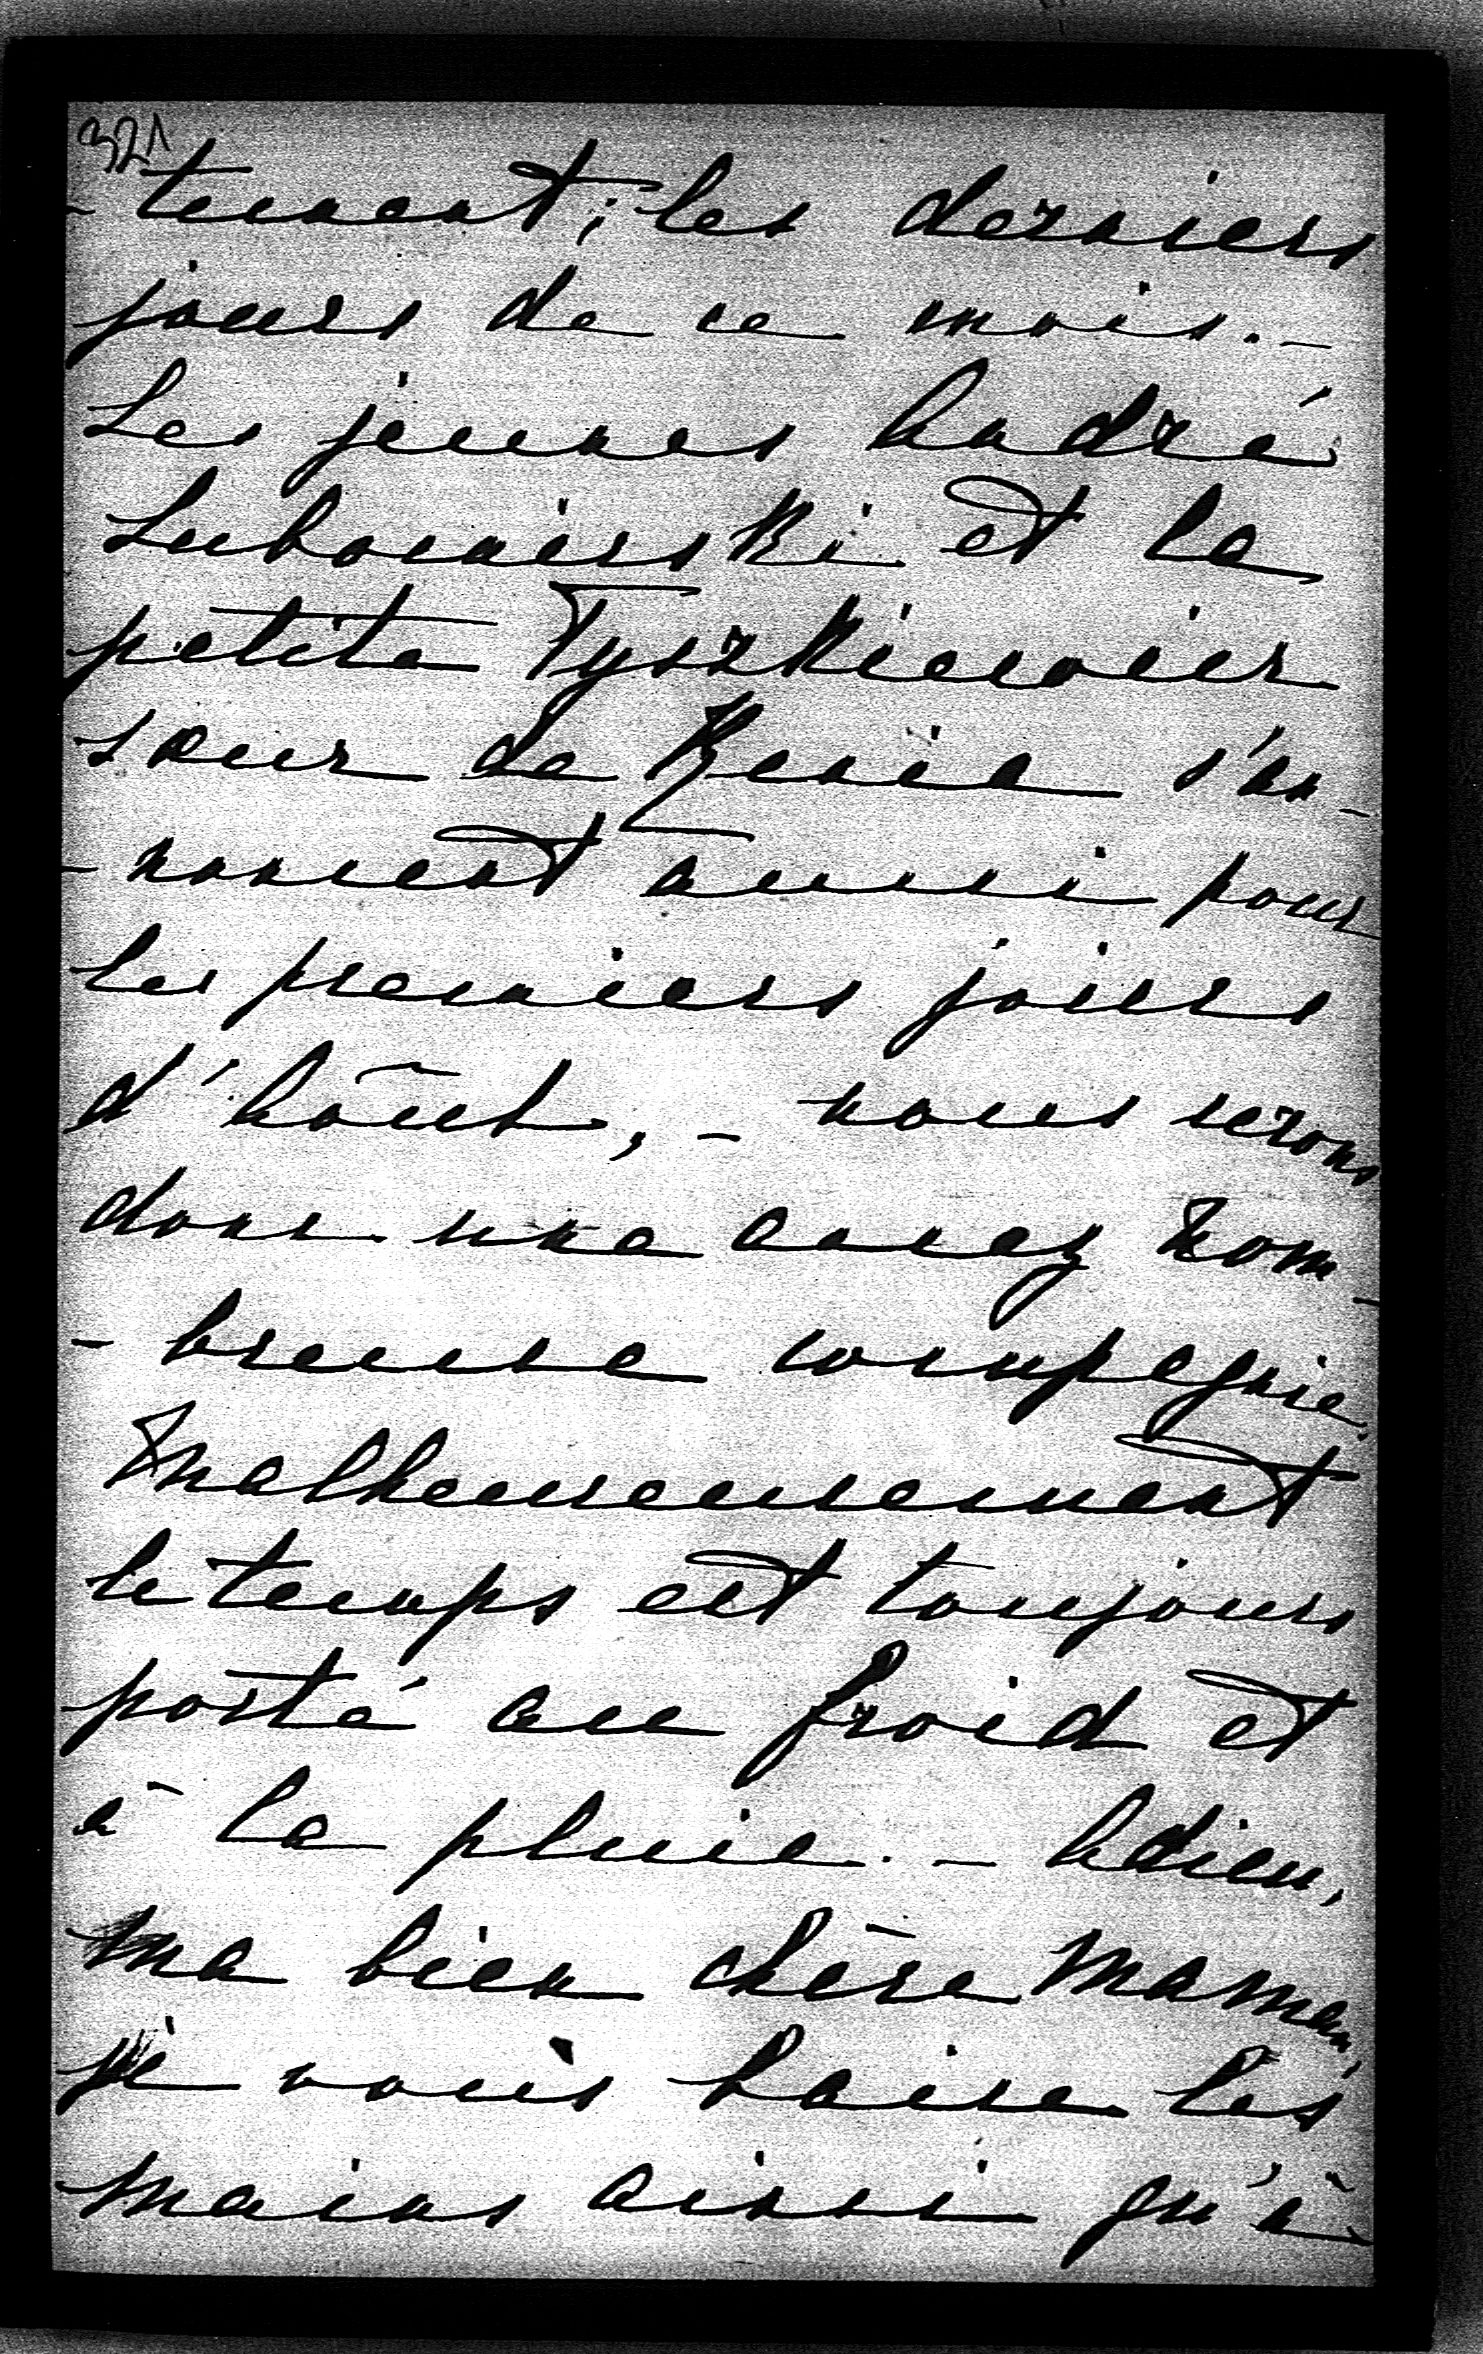 321
-tement; les derniers
jours de ce mois. –
Les jeunes André
Lubomirski et la
petite Tyszkiewicz
sœur de Renia s'an-
-noncent aussi pour
les premiers jours
d'Août, – nous serons
donc une assez nom-
-breuse compagnie.
Malheureusement
le temps est toujours
porté au froid et
à la pluie. – Adieu,
ma bien chère Maman,
je vous baise les
mains ainsi qu'à